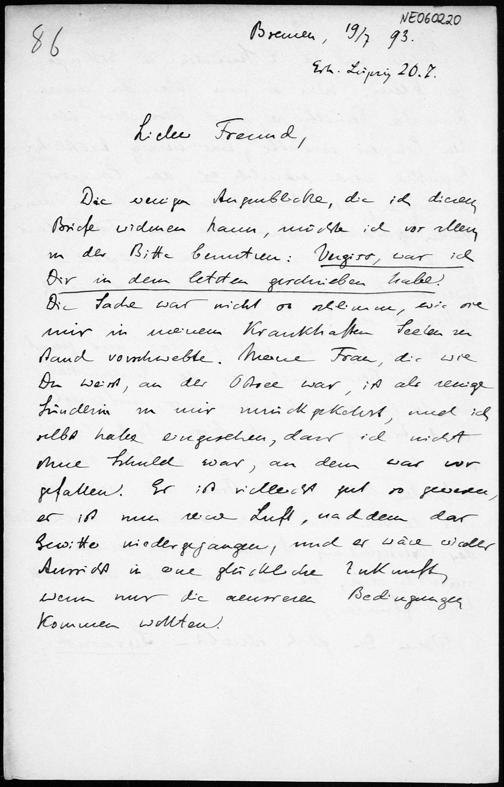 NE060220
86
Bremen, 19/7 93.
Erh. Leipzig 20.7.
Lieber Freund,
Die wenigen Augenblicke, die ich diesem
Briefe widmen kann, möchte ich vor allem
zu der Bitte benutzen: Vergiss, was ich
Dir in dem letzten geschrieben habe!
Die Sache war nicht so schlimm, wie sie
mir in meinem krankhaften Seelenzu
stand vorschwebte. Meine Frau, die wie
Du weisst, an der Ostsee war, ist als reuige
Sünderin zu mir zurückgekehrt, und ich
selbst habe eingesehen, dass ich nicht
ohne Schuld war, an dem was vor
gefallen. Es ist vielleicht gut so gewesen,
es ist nun reine Luft, nachdem das
Gewitter niedergegangen, und es wäre wieder
Aussicht in eine glückliche Zukunft,
wenn nur die aeusseren Bedingungen
kommen wollten!